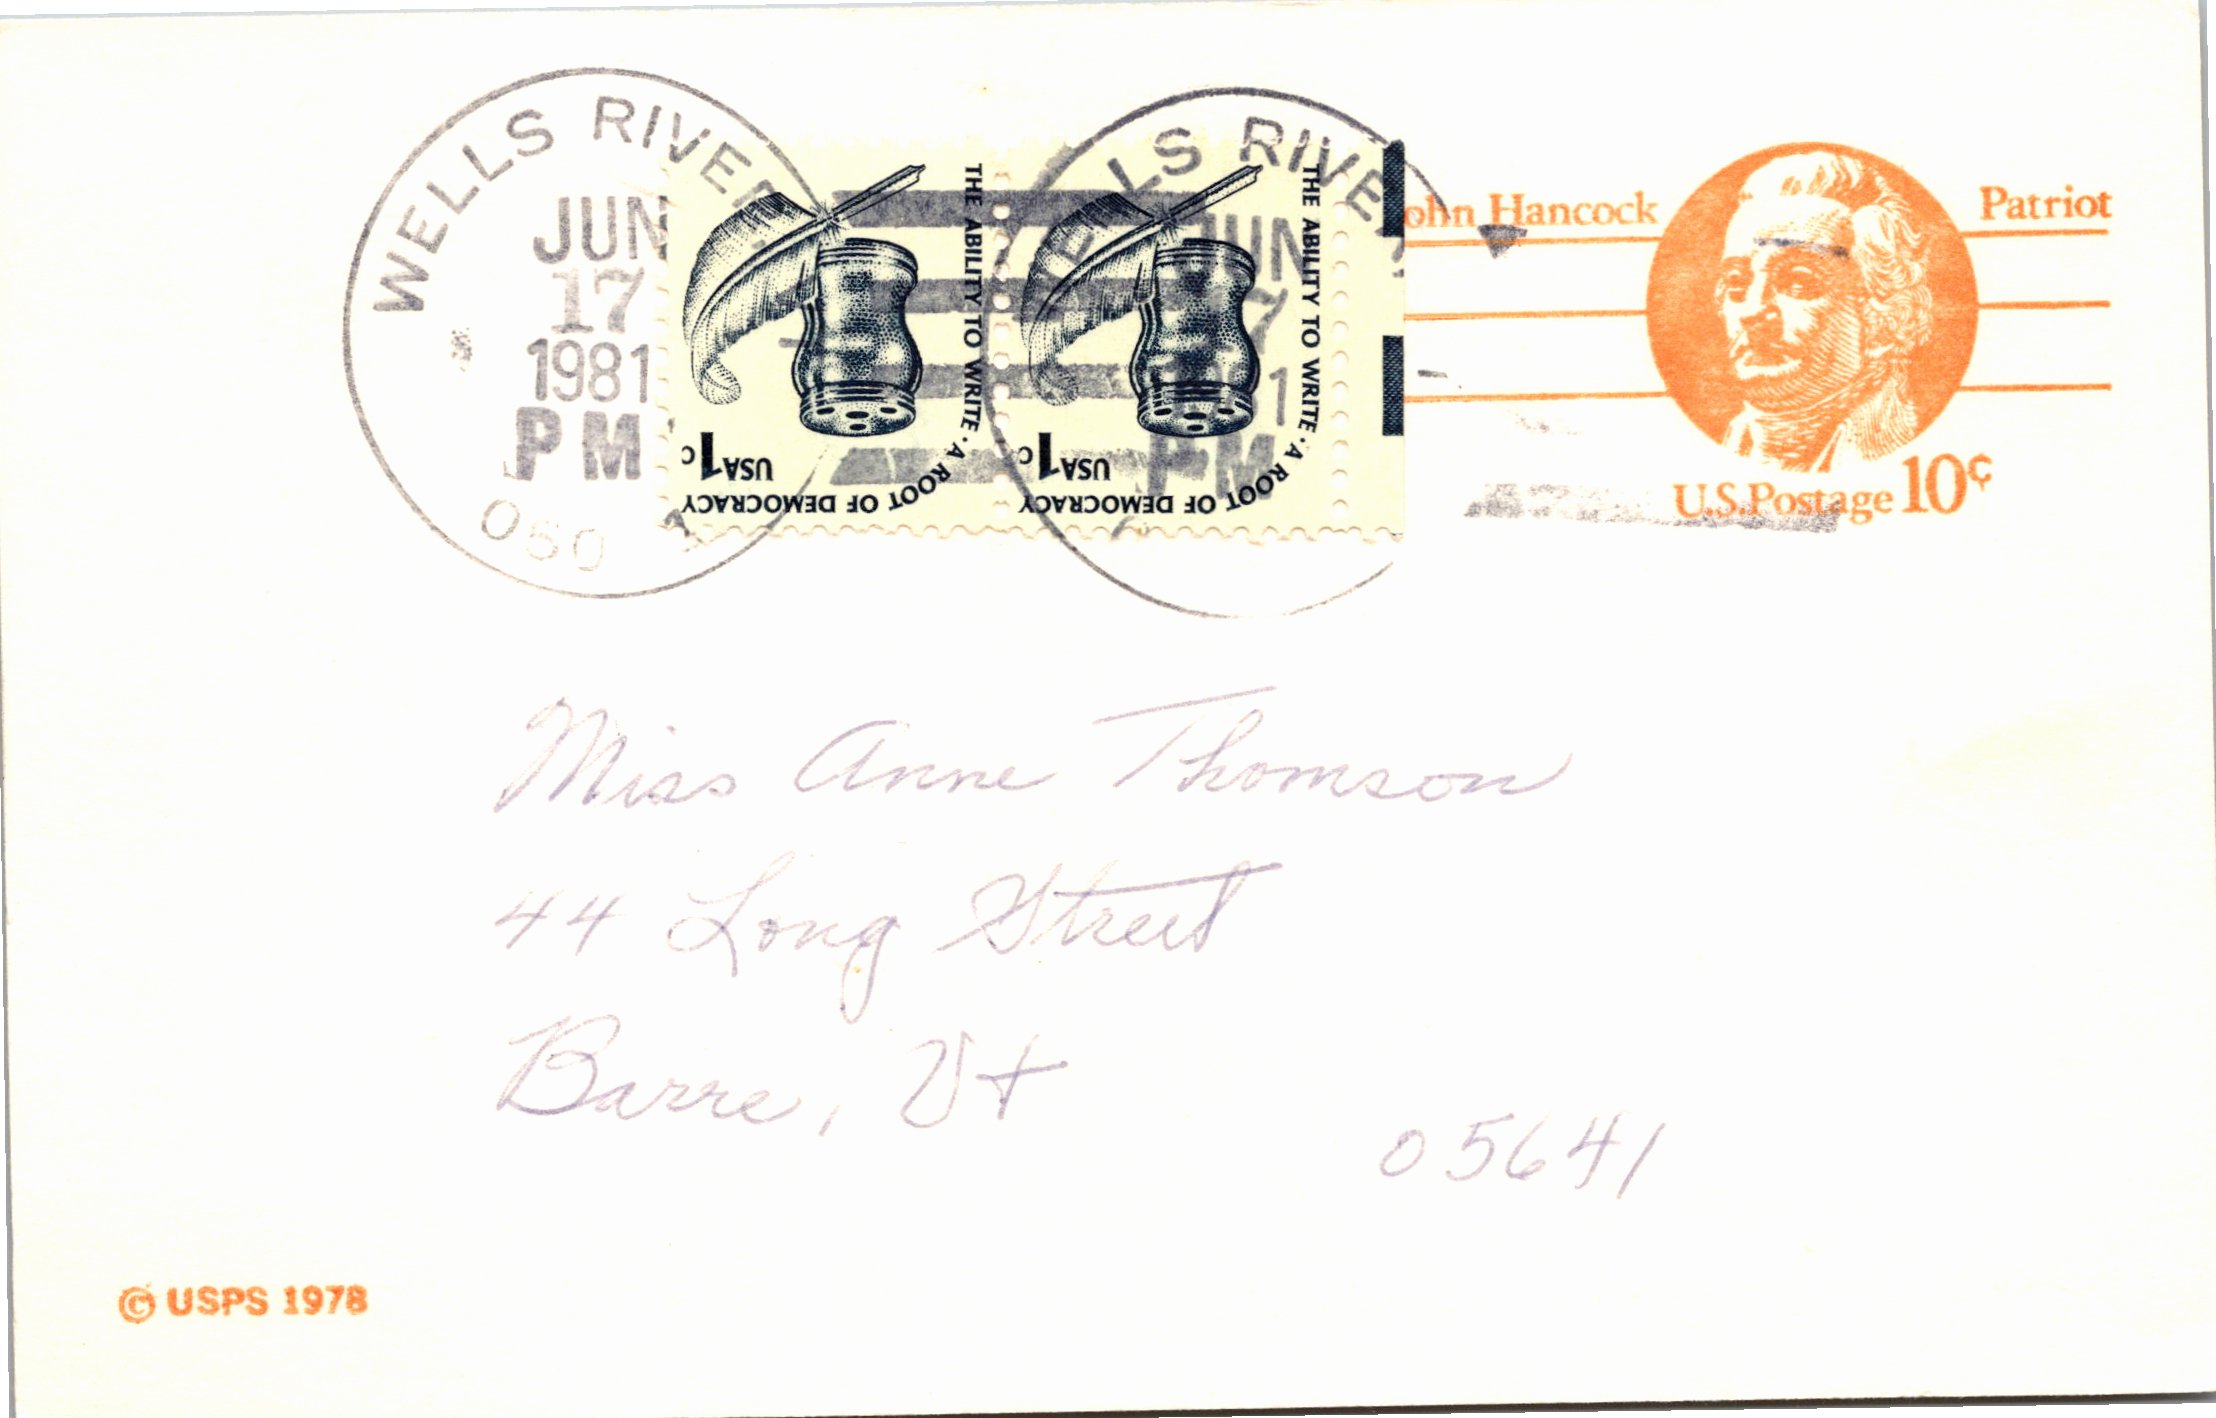 WELLS RIVER
JUN
17
1981
PM
050
THE ABILITY TO WRITE · A ROOT OF DEMOCRACY
USA 1c
THE ABILITY TO WRITE · A ROOT OF DEMOCRACY
USA 1c
WELLS RIVER
JUN
PM
John Hancock
Patriot
U.S. Postage 10¢
Miss Anne Thomson
44 Long Street
Barre, Vt
05641
© USPS 1978